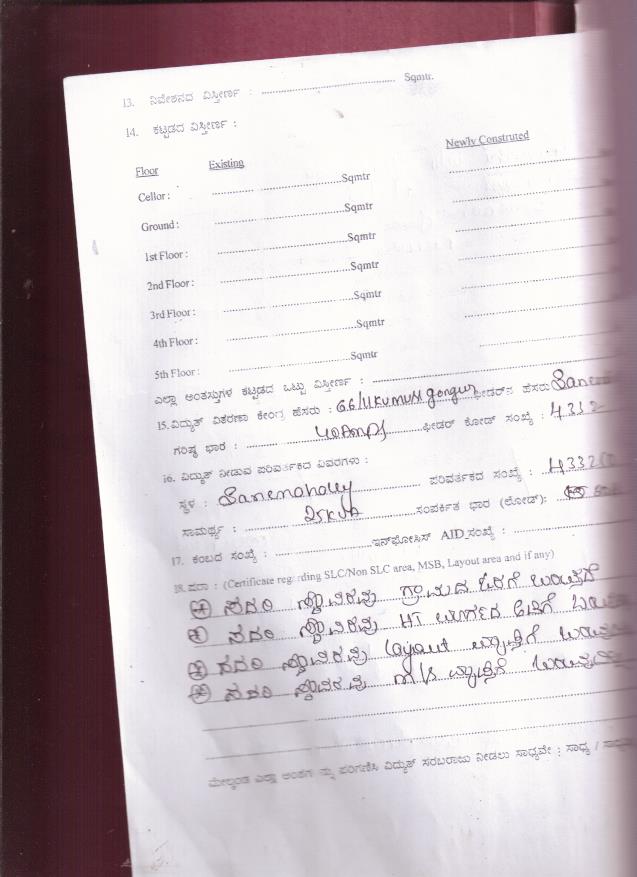 13. ನಿವೇಶನದ ವಿಸ್ತೀರ್ಣ : ............ Sqmtr.
14. ಕಟ್ಟಡದ ವಿಸ್ತೀರ್ಣ :
Floor Existing Newly Construted
Cellor : ............ Sqmtr ............
Ground : ............ Sqmtr ............
1st Floor : ............ Sqmtr ............
2nd Floor : ............ Sqmtr ............
3rd Floor : ............ Sqmtr ............
4th Floor : ............ Sqmtr ............
5th Floor : ............ Sqmtr ............
ಎಲ್ಲಾ ಅಂತಸ್ತುಗಳ ಕಟ್ಟಡದ ಒಟ್ಟು ವಿಸ್ತೀರ್ಣ : ............
15. ವಿದ್ಯುತ್ ವಿತರಣಾ ಕೇಂದ್ರ ಹೆಸರು : 66/11KV ಫೀಡರ್‌ನ ಹೆಸರು
ಗರಿಷ್ಠ ಭಾರ : 40AMPS ಫೀಡರ್ ಕೋಡ್ ಸಂಖ್ಯೆ : 4312
16. ವಿದ್ಯುತ್ ನೀಡುವ ಪರಿವರ್ತಕದ ವಿವರಗಳು :
ಸ್ಥಳ : Sanenahalley ಪರಿವರ್ತಕದ ಸಂಖ್ಯೆ :
ಸಾಮರ್ಥ್ಯ : 25KVA ಸಂಪರ್ಕಿತ ಭಾರ (ಲೋಡ್):
17. ಕಂಬದ ಸಂಖ್ಯೆ : ............ ಇನ್‌ಫೋಸಿಸ್ AID ಸಂಖ್ಯೆ : ............
18. ಷರಾ : (Certificate regarding SLC/Non SLC area, MSB, Layout area and if any)
ಸದರಿ ಸ್ಥಾವರವು ಗ್ರಾಮದ
ಸದರಿ ಸ್ಥಾವರವು HT ಮಾರ್ಗದ
ಸದರಿ ಸ್ಥಾವರವು Layout ವ್ಯಾಪ್ತಿಗೆ
ಸದರಿ ಸ್ಥಾವರವು ವ್ಯಾಪ್ತಿಗೆ
ಮೇಲ್ಕಂಡ ಎಲ್ಲಾ ಪರಿಗಣಿಸಿ ವಿದ್ಯುತ್ ಸರಬರಾಜು ನೀಡಲು ಸಾಧ್ಯವೇ : ಸಾಧ್ಯ /